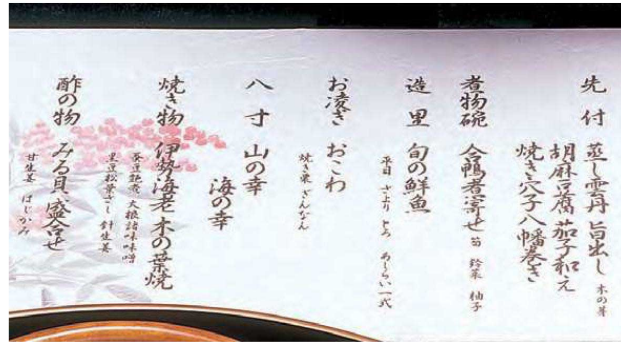 先付 蒸し雲丹 旨出し 木の芽
胡麻豆腐 茄子和え
焼き穴子八幡巻き
煮物碗 合鴨者寄せ 筍 鈴菜 柚子
造里 旬の鮮魚
平目 さより とろ あしらい一式
お凌ぎ おこわ
焼き栗 ぎんなん
八寸 山の幸
海の幸
焼き物 伊勢海老 木の葉焼
大根諸味味噌
黒豆松葉ざし 針生姜
酢の物 みる貝 盛合せ
甘生姜 はじかみ